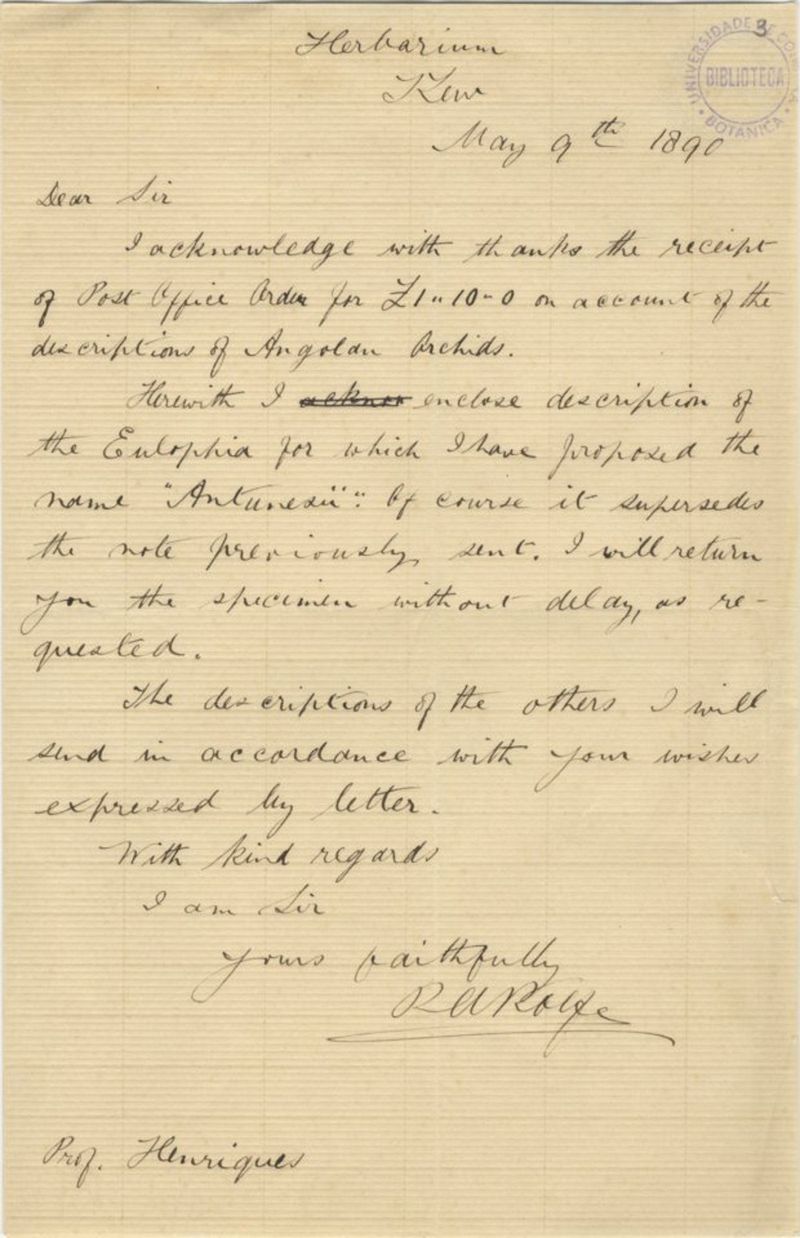 3
UNIVERSIDADE DE COIMBRA
BIBLIOTECA
BOTANICA
Herbarium
Kew
May 9th 1890
Dear Sir
I acknowledge with thanks the receipt
of Post Office Order for £1"10"0 on account of the
descriptions of Angolan Orchids.
Herewith I acknow enclose description of
the Eulophia for which I have proposed the
name "Antunesii". Of course it supersedes
the note previously sent. I will return
you the specimen without delay, as re-
quested.
The descriptions of the others I will
send in accordance with your wishes
expressed by letter.
With kind regards
I am Sir
Yours faithfully
R A Rolfe
Prof. Henriques